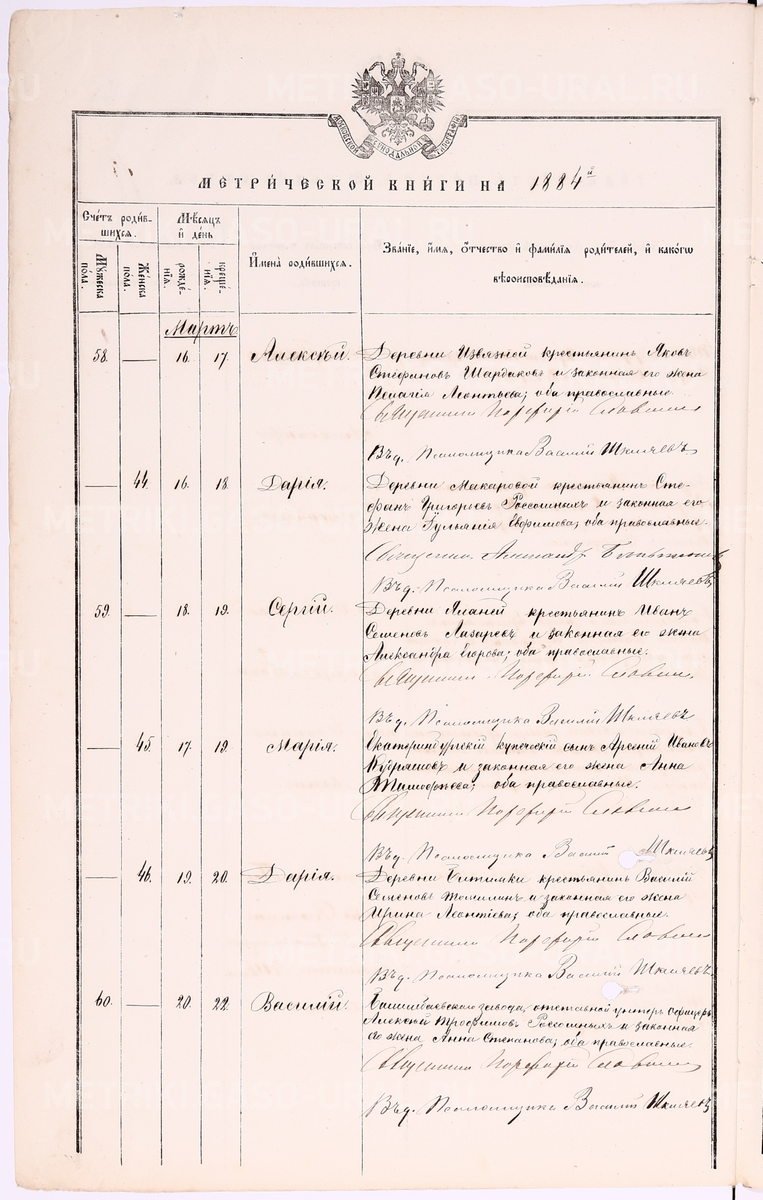 МЕТРИ́ЧЕСКОЙ КНИ́ГИ НА 1884й
Сче́тъ роди́вшихся.
Мѣ́сяцъ и де́нь
Имена̀ роди́вшихся.
Зва́нїе, и́мя, о́тчество и фами́лїя роди́телей, и како́гѡ вѣроисповѣ́данїя.
Мꙋ́жеска по́ла.
Же́нска по́ла.
рожде́нїя.
креще́нїя.
Мартъ
58. — 16. 17. Алексѣй. Деревни Извязной крестьянинъ Яковъ
Стефановъ Шардаковъ и законная его жена
Пелагія Леонтьева; оба православные.
Священникъ Порфирій Славнинъ
Въ д. Псаломщика Василій Шкляевъ
— 44. 16. 18. Дарія. Деревни Макаровой крестьянинъ Сте-
фанъ Григорьевъ Россошныхъ и законная его
жена Гульянія Евфимова; оба православные.
Священникъ Александръ
Въ д. Псаломщика Василій Шкляевъ
59. — 18. 19. Сергій. Деревни Аланой крестьянинъ Иванъ
Семеновъ Лазаревъ и законная его жена
Александра Егорова; оба православные.
Священникъ Порфирій Славнинъ
Въ д. Псаломщика Василій Шкляевъ
— 45. 17. 19. Марія. Екатеринбургскій купеческій сынъ Арсеній Ивановъ
Кудряшовъ и законная его жена Анна
Тимофѣева; оба православные.
Священникъ Порфирій Славнинъ
Въ д. Псаломщика Василій Шкляевъ
— 46. 19. 20. Дарія. Деревни Елтимки крестьянинъ Василій
Семеновъ Томилинъ и законная его жена
Ирина Леонтіева; оба православные.
Священникъ Порфирій Славнинъ
Въ д. Псаломщика Василій Шкляевъ
60. — 20. 22. Василій. Билимбаевскаго завода, отставной унтеръ офицеръ
Алексѣй Трофимовъ Россошныхъ и законная
его жена Анна Степанова; оба православные.
Священникъ Порфирій Славнинъ
Въ д. Псаломщика Василій Шкляевъ